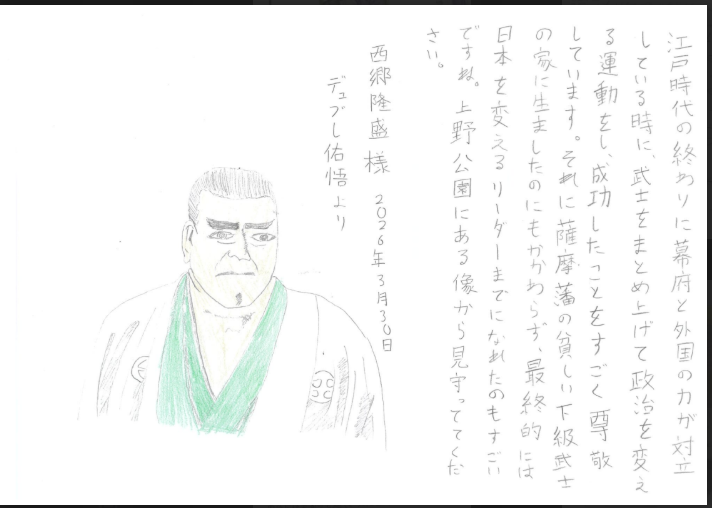 江戸時代の終わりに幕府と外国の力が対立
している時に、武士をまとめ上げて政治を変え
る運動をし、成功したことをすごく尊敬
しています。それに薩摩藩の貧しい下級武士
の家に生ましたのにもかかわらず、最終的には
日本を変えるリーダーまでになれたのもすごい
ですね。上野公園にある像から見守っててくだ
さい。
西郷隆盛様 2026年3月30日
デュブし佑悟より